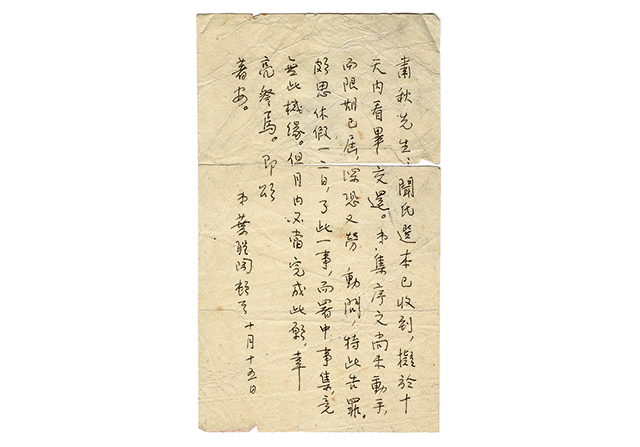 肅秋先生：聞氏選本已收到，擬於十
天內看畢交還。弟集序文尚未動手，
而限期已屆，深恐又勞動問，特此告罪。
頗思休假一二日，了此一事，而署中事集，竟
無此機緣。但月內必當完成此願，幸
亮詧焉。即頌
著安。
弟葉聖陶頓首 十月十五日